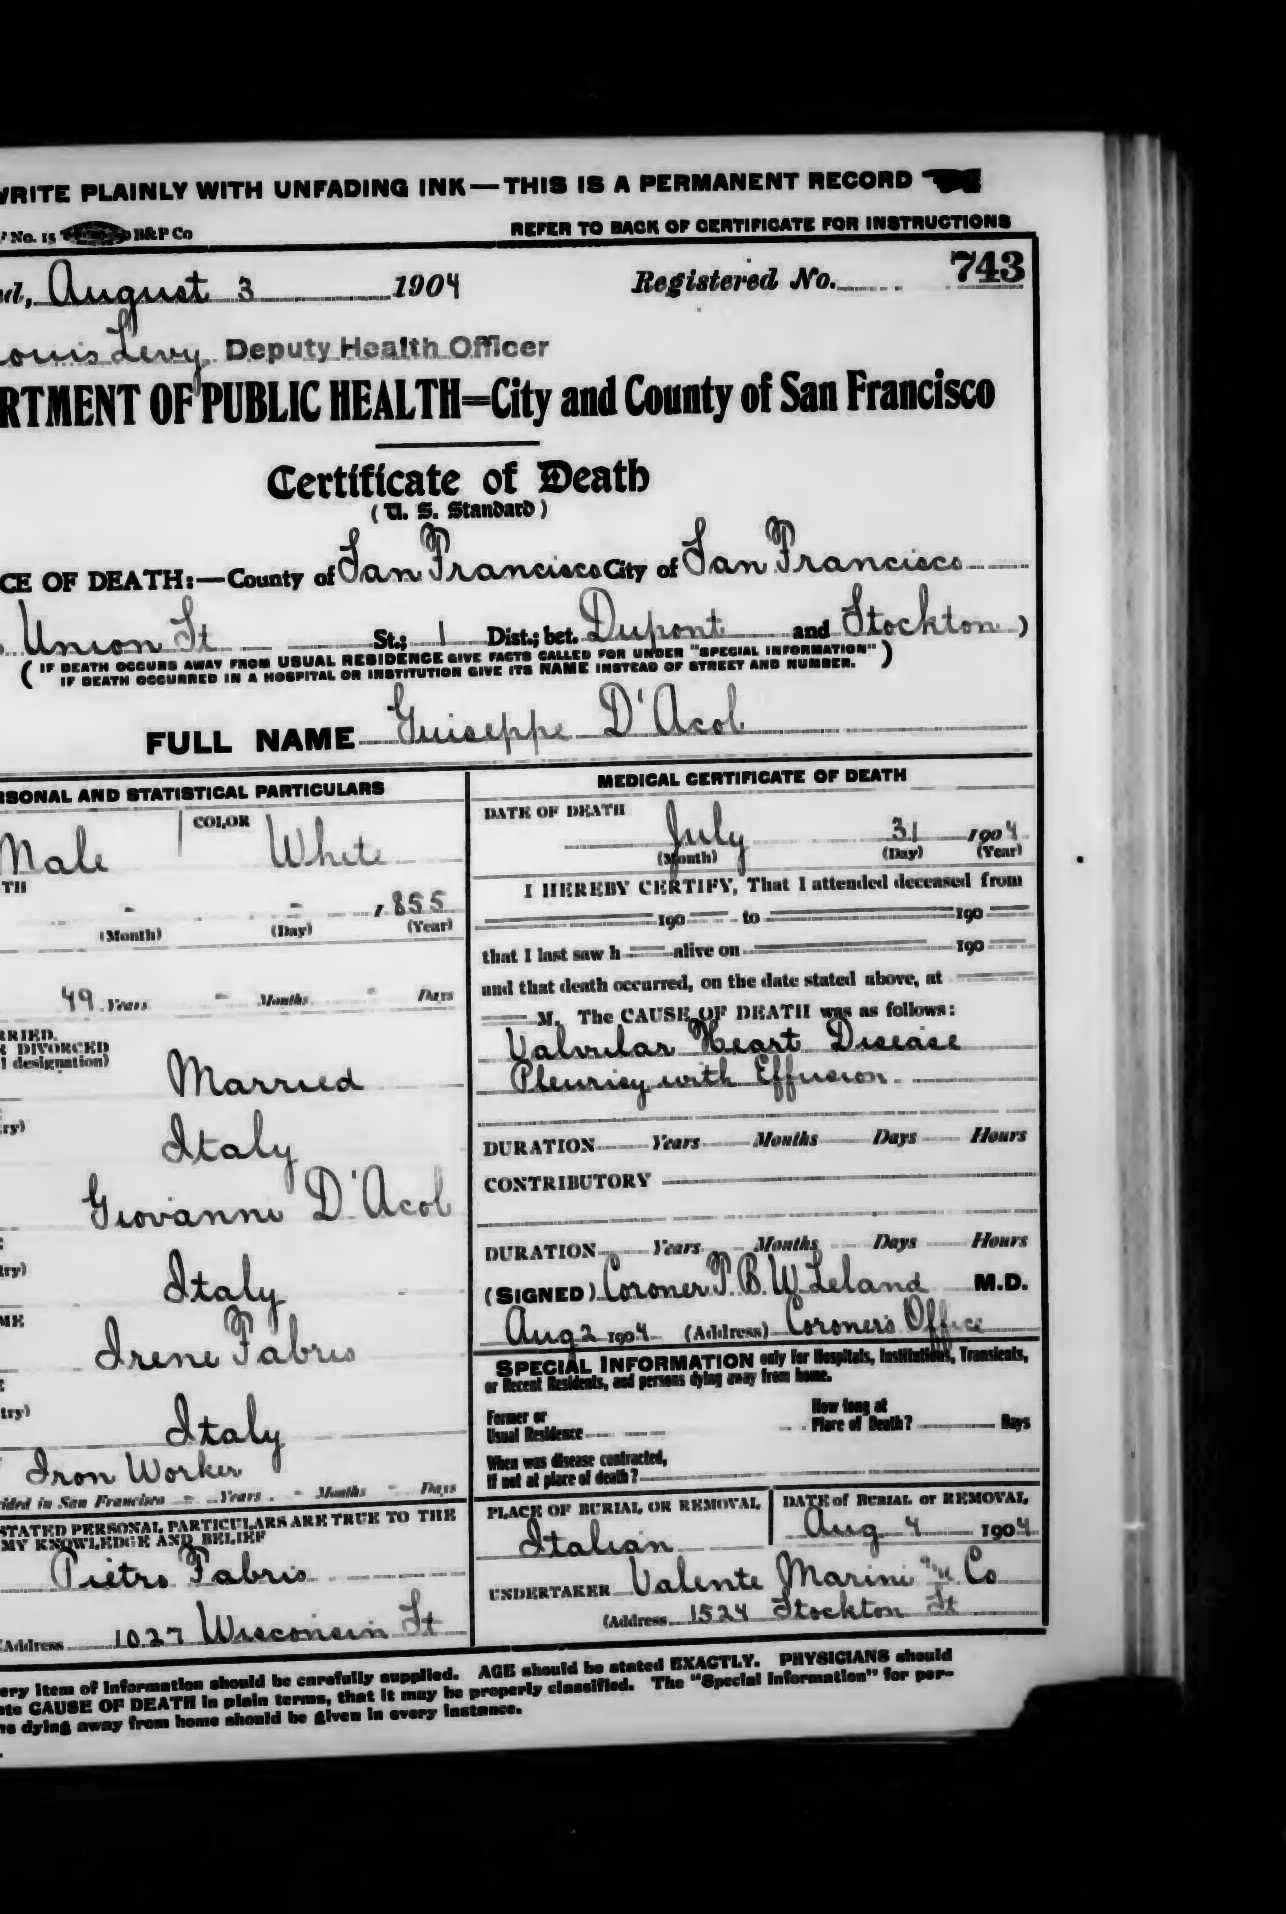 WRITE PLAINLY WITH UNFADING INK—THIS IS A PERMANENT RECORD
No. 15 B&P Co REFER TO BACK OF CERTIFICATE FOR INSTRUCTIONS
ed, August 3 1904 Registered No. 743
Louis Levy Deputy Health Officer
RTMENT OF PUBLIC HEALTH=City and County of San Francisco
Certificate of Death
(U. S. Standard)
CE OF DEATH:—County of San Francisco City of San Francisco
Union St St.; 1 Dist.; bet. Dupont and Stockton )
( IF DEATH OCCURS AWAY FROM USUAL RESIDENCE GIVE FACTS CALLED FOR UNDER "SPECIAL INFORMATION" )
IF DEATH OCCURRED IN A HOSPITAL OR INSTITUTION GIVE ITS NAME INSTEAD OF STREET AND NUMBER.
FULL NAME Guiseppe D'Acol
RSONAL AND STATISTICAL PARTICULARS
Male COLOR White
TH
- - 1855
(Month) (Day) (Year)
49 Years - Months - Days
RRIED.
R DIVORCED
l designation)
Married
ry)
Italy
Giovanni D'Acol
try)
Italy
ME
Irene Fabris
try)
Italy
Iron Worker
ided in San Francisco - Years - Months - Days
STATED PERSONAL PARTICULARS ARE TRUE TO THE
MY KNOWLEDGE AND BELIEF
Pietro Fabris
(Address 1027 Wisconsin St
MEDICAL CERTIFICATE OF DEATH
DATE OF DEATH
July 31 1904
(Month) (Day) (Year)
I HEREBY CERTIFY, That I attended deceased from
190 to 190
that I last saw h alive on 190
and that death occurred, on the date stated above, at
M. The CAUSE OF DEATH was as follows:
Valvular Heart Disease
Pleurisy with Effusion
DURATION Years Months Days Hours
CONTRIBUTORY
DURATION Years Months Days Hours
(SIGNED) Coroner T. B. W. Leland M.D.
Aug 2 1904 (Address) Coroner's Office
SPECIAL INFORMATION only for Hospitals, Institutions, Transients,
or Recent Residents, and persons dying away from home.
Former or
Usual Residence
How long at
Place of Death? Days
When was disease contracted,
If not at place of death?
PLACE OF BURIAL OR REMOVAL
Italian
DATE of BURIAL or REMOVAL
Aug 4 1904
UNDERTAKER Valente Marini Co
(Address 1524 Stockton St
ery item of information should be carefully supplied. AGE should be stated EXACTLY. PHYSICIANS should
ate CAUSE OF DEATH in plain terms, that it may be properly classified. The "Special Information" for per-
ns dying away from home should be given in every instance.